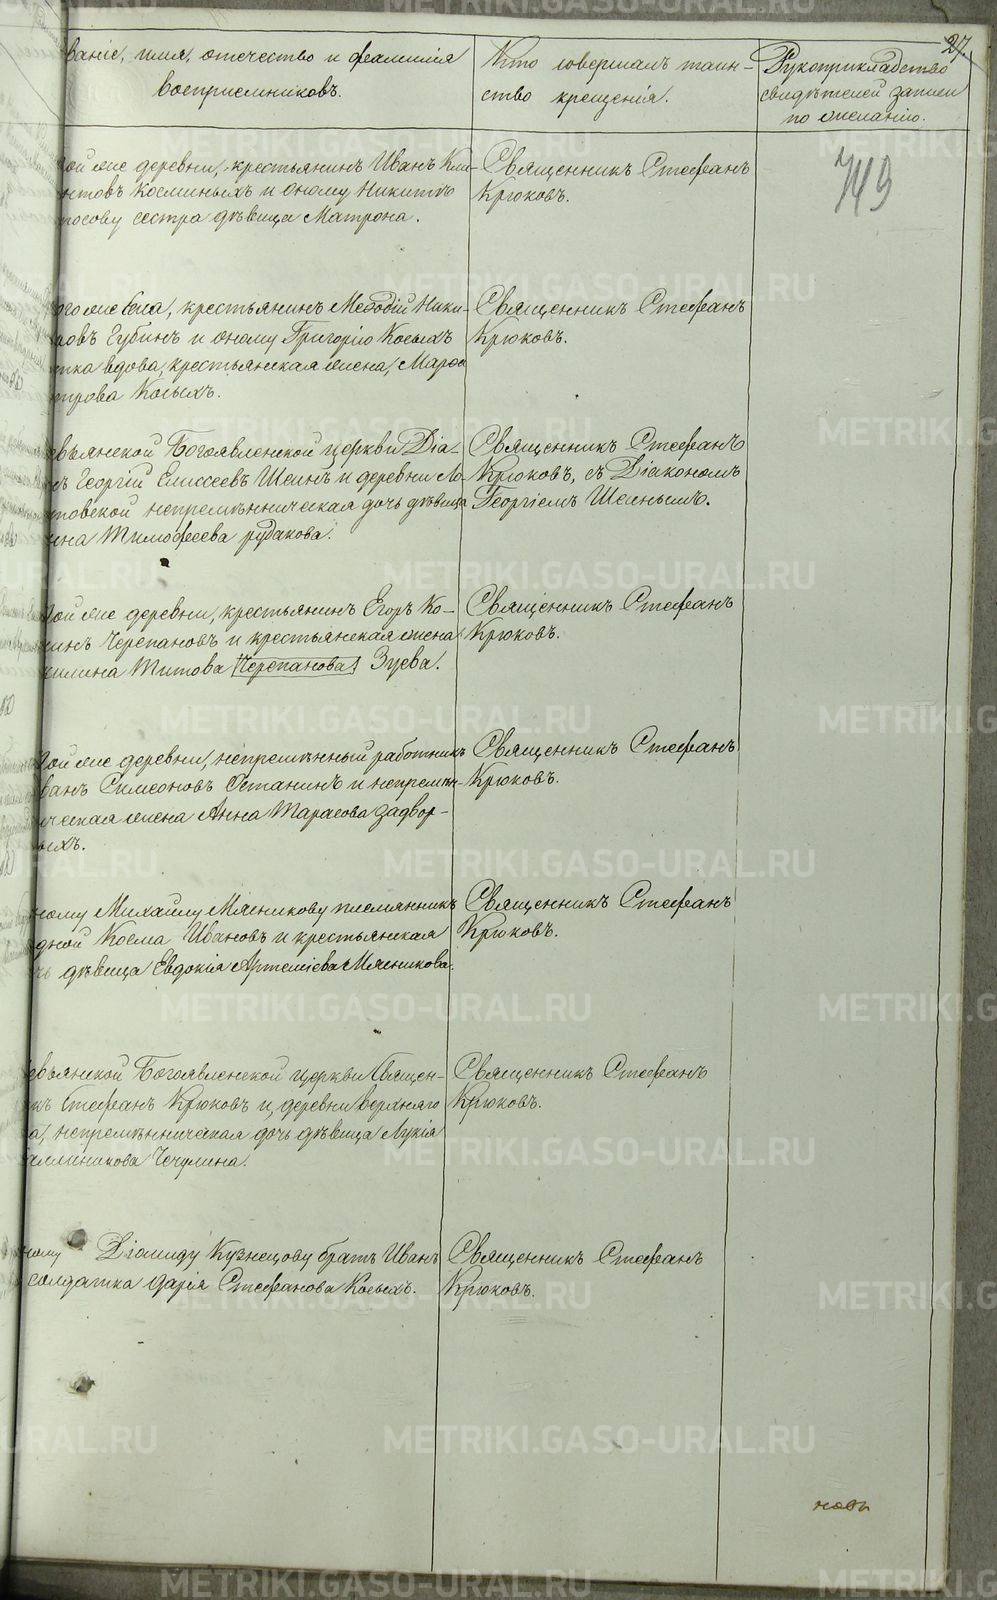 27
ваніе, имя, отчество и фамилія
воспріемниковъ.
Кто совершалъ таин-
ство крещенія.
Рукоприкладство
свидѣтелей записи
по желанію.
749
той же деревни, крестьянинъ Иванъ Кли-
нтовъ Косминыхъ и оному Никитѣ
сестра дѣвица Матрона.
Священникъ Стефанъ
Крюковъ.
ого же села, крестьянинъ Меѳодій Ники-
ровъ Губинъ и оному Григорію Косыхъ
тка вдова, крестьянская жена, Марѳа
етрова Косыхъ.
Священникъ Стефанъ
Крюковъ.
евьянской Богоявленской церкви Діа-
нъ Георгій Елиссеевъ Шеинъ и деревни Ло-
товской непремѣнническая дочь дѣвица
нна Тимофеева рудакова.
Священникъ Стефанъ
Крюковъ, съ Діакономъ
Георгіемъ Шеинымъ.
той же деревни, крестьянинъ Егоръ Ко-
минъ Черепановъ и крестьянская жена
килина Титова Черепанова Зуева.
Священникъ Стефанъ
Крюковъ.
той же деревни, непремѣнный работникъ
ванъ Симеоновъ Останинъ и непремѣн-
ическая жена Анна Тарасова задвор-
ныхъ.
Священникъ Стефанъ
Крюковъ.
ному Михаилу Мясникову племянникъ
дной Косма Ивановъ и крестьянская
чь дѣвица Евдокія Артеміева Мясникова.
Священникъ Стефанъ
Крюковъ.
евьянской Богоявленской церкви Священ-
къ Стефанъ Крюковъ и деревни верхняго
а, непремѣнническая дочь дѣвица Лукія
аллиникова Чечулина.
Священникъ Стефанъ
Крюковъ.
ному Діомиду Кузнецову братъ Иванъ
солдатка Дарія Стефанова Косыхъ.
Священникъ Стефанъ
Крюковъ.
METRIKI.GASO-URAL.RU